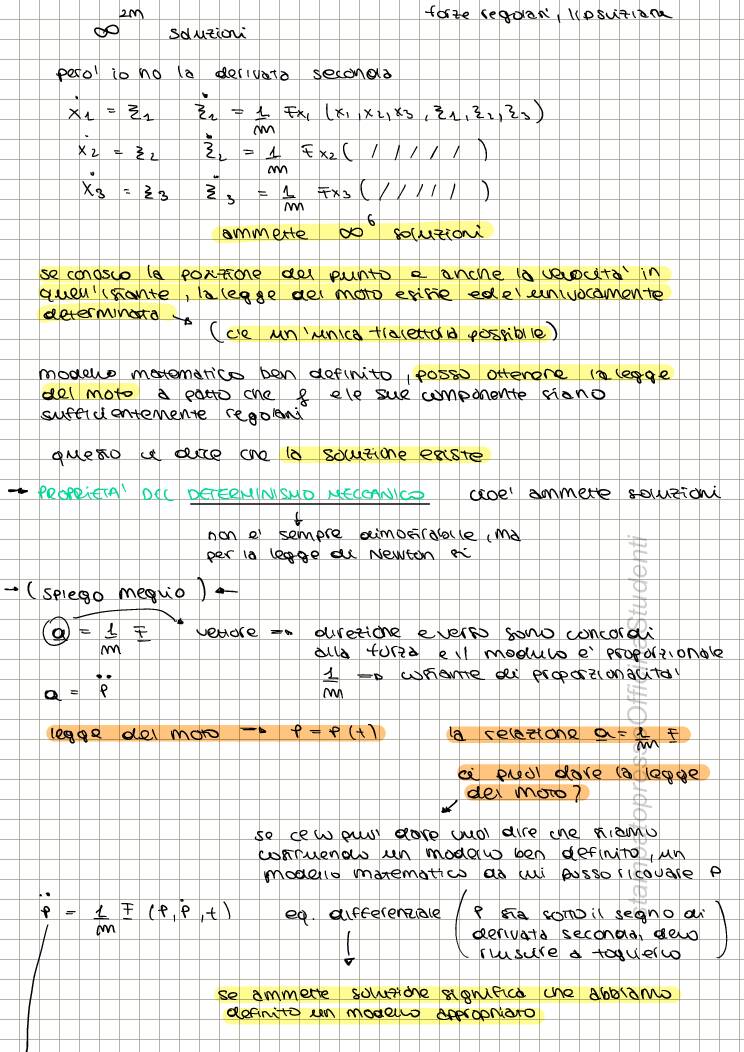 ∞^2M soluzioni
forze regolari, lipsuiziane
pero' io no la derivata seconda
ẋ1 = ξ1 ξ̇1 = 1/m Fx1 (x1, x2, x3, ξ1, ξ2, ξ3)
ẋ2 = ξ2 ξ̇2 = 1/m Fx2 ( / / / / / )
ẋ3 = ξ3 ξ̇3 = 1/m Fx3 ( / / / / / )
ammette ∞^6 soluzioni
se conosco la posizione del punto e anche la velocita' in
quell'istante, la legge del moto esiste ed e' univocamente
determinata
(c'e un'unica traiettoria possibile)
modello matematico ben definito, posso ottenere la legge
del moto a patto che f e le sue componente siano
sufficientemente regolari
questo ci dice che la soluzione esiste
→ PROPRIETA' DEL DETERMINISMO MECCANICO cioe' ammette soluzioni
non e' sempre dimostrabile, ma
per la legge di Newton si
→ (spiego meglio) ←
a = 1/m F vettore => direzione e verso sono concordi
alla forza e il modulo e' proporzionale
1/m => costante di proporzionalita'
a = p̈
legge del moto → P = P(t)
la relazione a = 1/m F
ci puo' dare la legge
del moto?
se ce lo puo' dare vuol dire che stiamo
costruendo un modello ben definito, un
modello matematico da cui posso ricavare P
p̈ = 1/m F (P, Ṗ, t) eq. differenziale (P sta sotto il segno di
derivata seconda, devo
riuscire a toglierlo)
se ammette soluzione significa che abbiamo
definito un modello appropriato